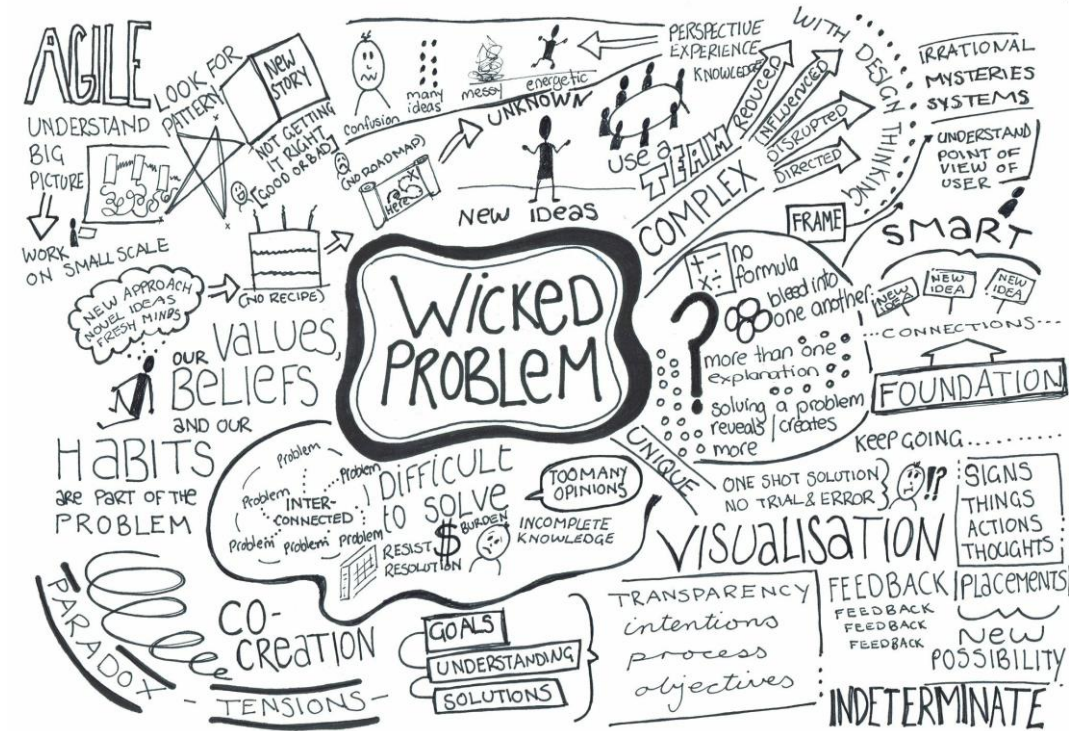 AGILE
UNDERSTAND
BIG
PICTURE
WORK
ON SMALL SCALE
LOOK FOR
PATTERN
NEW
STORY
NOT GETTING
IT RIGHT
(GOOD OR BAD)
confusion
many
ideas
messy
energetic
UNKNOWN
PERSPECTIVE
EXPERIENCE
KNOWLEDGE
(NO ROADMAP)
Here
X
NEW IDEAS
USE a
TEAM
COMPLEX
REDUCED
INFLUENCED
DISRUPTED
DIRECTED
WITH DESIGN THINKING
IRRATIONAL
MYSTERIES
SYSTEMS
UNDERSTAND
POINT OF
VIEW OF
USER
FRAME
SMART
NEW
IDEA
NEW
IDEA
NEW
IDEA
CONNECTIONS
FOUNDATION
(NO RECIPE)
NEW APPROACH
NOVEL IDEAS
FRESH MINDS
OUR VALUES,
BELIEFS
AND OUR
HABITS
ARE PART OF THE
PROBLEM
WICKED
PROBLEM
+ -
x ÷
no
formula
?
bleed into
one another
more than one
explanation
solving a problem
reveals/creates
more
UNIQUE
Problem
Problem
Problem
INTER-
CONNECTED
Problem
Problem
Problem
DIFFICULT
to SOLVE
RESIST
RESOLUTION
$
BURDEN
TOO MANY
OPINIONS
INCOMPLETE
KNOWLEDGE
KEEP GOING..........
ONE SHOT SOLUTION
NO TRIAL & ERROR
!?
VISUALISATION
SIGNS
THINGS
ACTIONS
THOUGHTS
PARADOX
CO-
CREATION
- TENSIONS -
GOALS
UNDERSTANDING
SOLUTIONS
TRANSPARENCY
intentions
process
objectives
FEEDBACK
FEEDBACK
FEEDBACK
FEEDBACK
PLACEMENTS
NEW
POSSIBILITY
INDETERMINATE